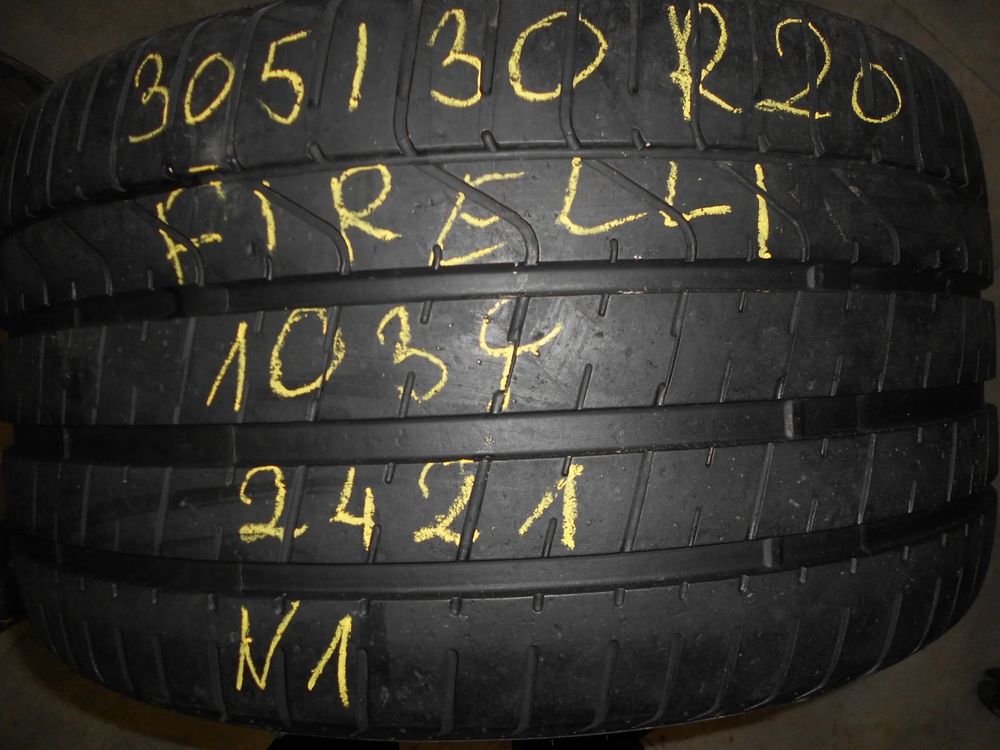 305/30 R20
PIRELLI
103Y
2421
N1